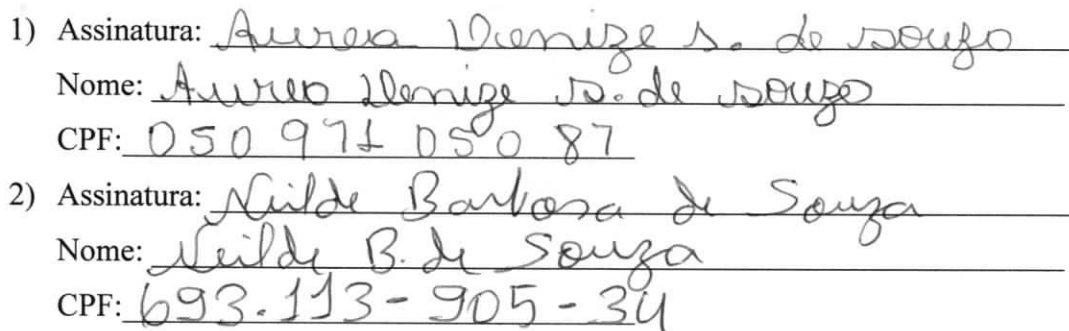 1) Assinatura: Aurea Denize S. de Souza
Nome: Aurea Denize S. de Souza
CPF: 050 971 050 87
2) Assinatura: Neilde Barbosa de Souza
Nome: Neilde B. de Souza
CPF: 693.113-905-34